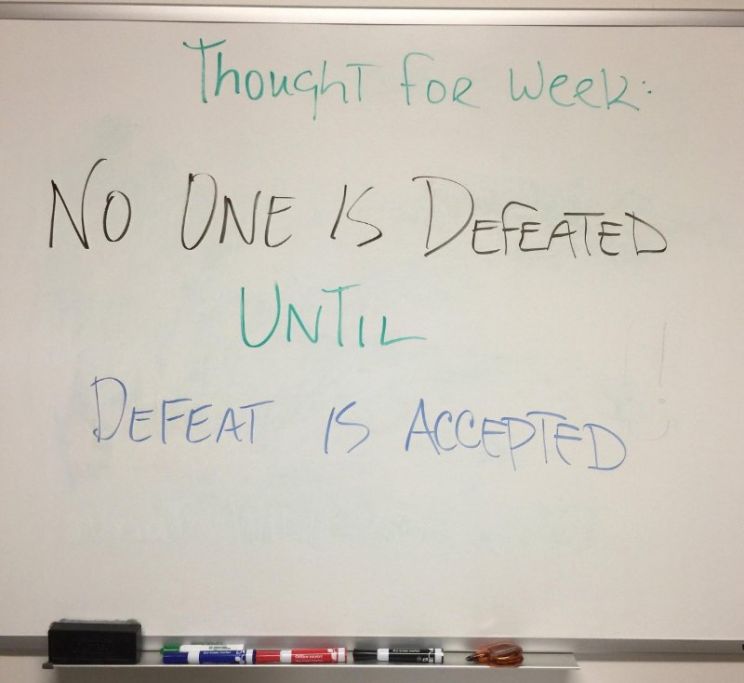 Thought for week:
NO ONE IS DEFEATED
UNTIL
DEFEAT IS ACCEPTED